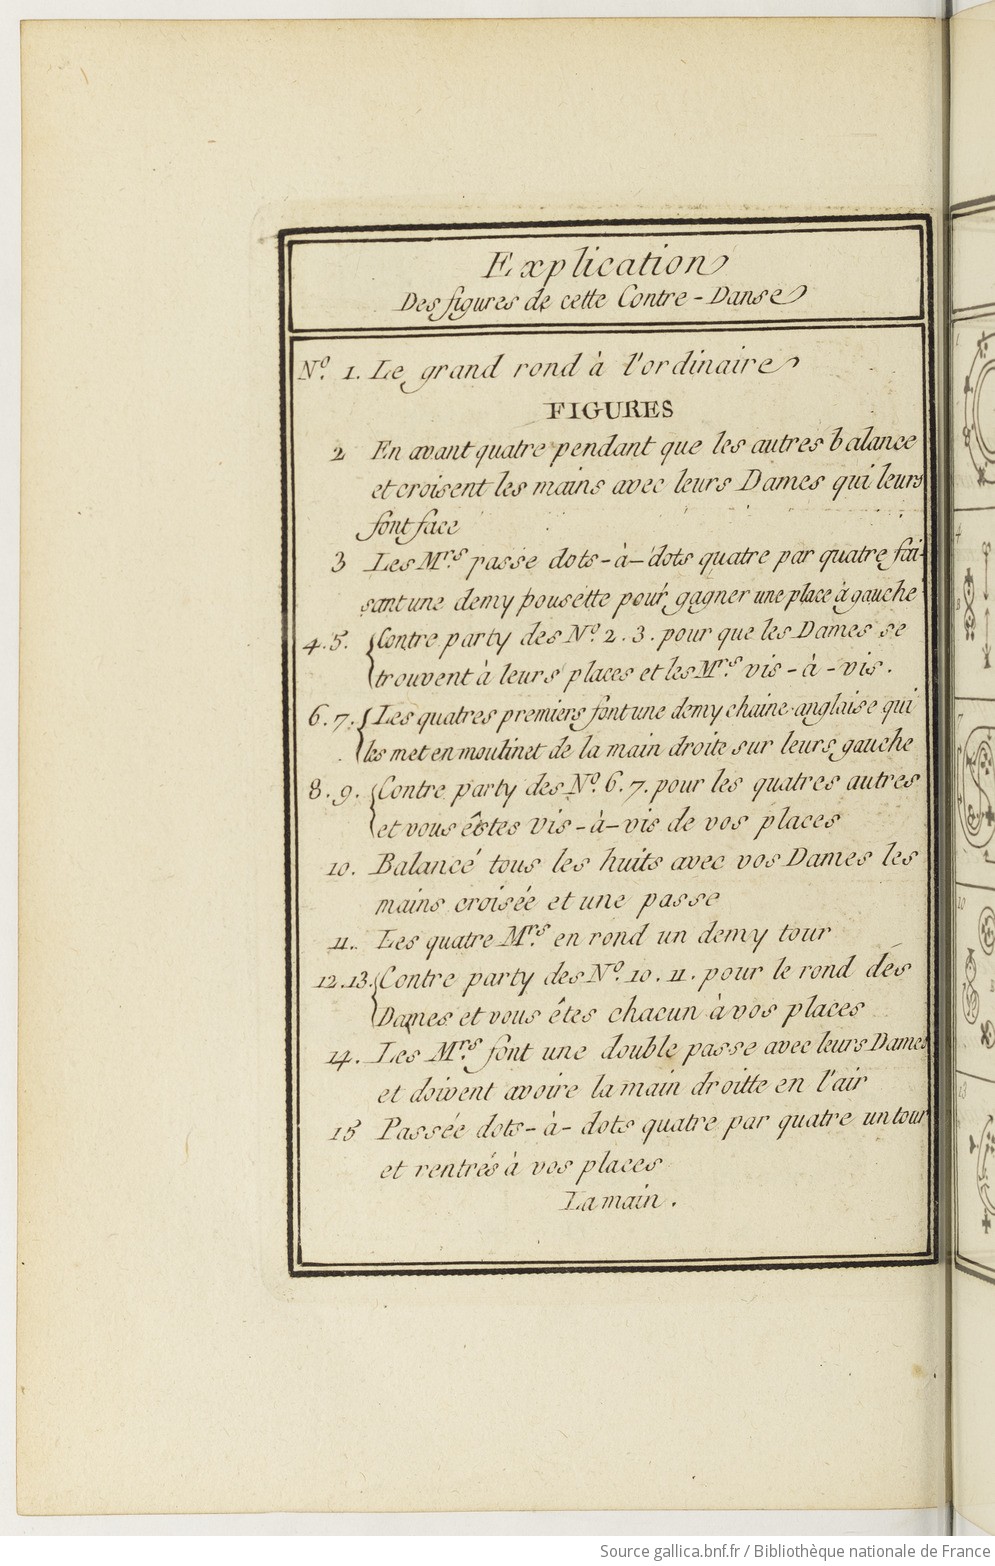 Explication
Des figures de cette Contre-Danse
Nº. 1. Le grand rond à l'ordinaire
FIGURES
2 En avant quatre pendant que les autres balance
et croisent les mains avec leurs Dames qui leurs
font face
3 Les Mrs. passe dots-à-dots quatre par quatre fai-
sant une demy pousette pour gagner une place à gauche
4.5. Contre party des Nº. 2.3. pour que les Dames se
trouvent à leurs places et les Mrs. vis-à-vis.
6.7. Les quatres premiers font une demy chaine anglaise qui
les met en moulinet de la main droite sur leurs gauche
8.9. Contre party des Nº. 6.7. pour les quatres autres
et vous êstes vis-à-vis de vos places
10. Balancé tous les huits avec vos Dames les
mains croisée et une passe
11. Les quatre Mrs. en rond un demy tour
12.13. Contre party des Nº. 10.11. pour le rond dés
Dames et vous êtes chacun à vos places
14. Les Mrs. font une double passe avec leurs Dames
et doivent avoire la main droitte en l'air
15 Passée dots-à-dots quatre par quatre un tour
et rentrés à vos places
La main.
Source gallica.bnf.fr / Bibliothèque nationale de France